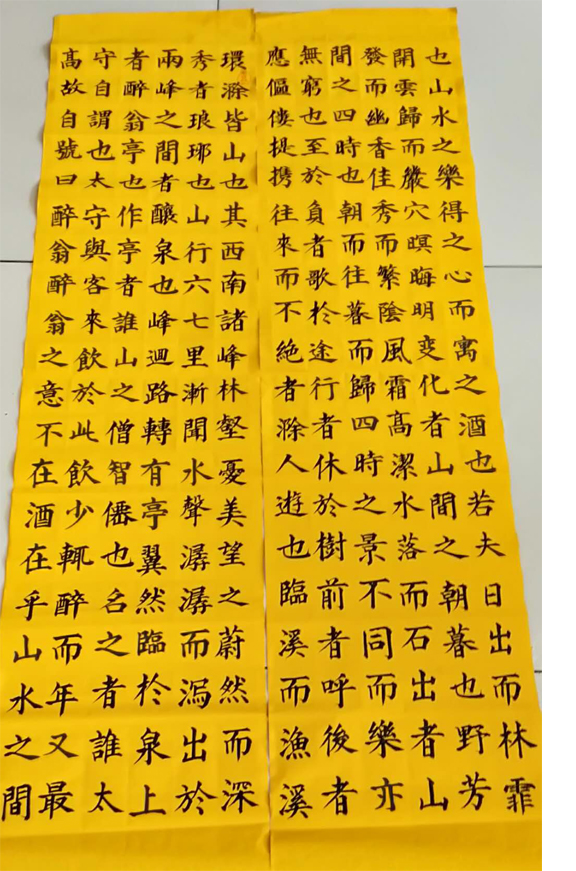 環滁皆山也其西南諸峰林壑憂美望之蔚然而深
秀者琅琊也山行六七里漸聞水聲潺潺而瀉出於
兩峰之間者釀泉也峰迴路轉有亭翼然臨於泉上
者醉翁亭也作亭者誰山之僧智僊也名之者誰太
守自謂也太守與客來飲於此飲少輒醉而年又最
髙故自號曰醉翁醉翁之意不在酒在乎山水之間
也山水之樂得之心而寓之酒也若夫日出而林霏
開雲歸而巖穴暝晦明変化者山間之朝暮也野芳
發而幽香佳秀而繁陰風霜髙潔水落而石出者山
間之四時也朝而往暮而歸四時之景不同而樂亦
無窮也至於負者歌於途行者休於樹前者呼後者
應傴僂提携往來而不絶者滁人遊也臨溪而漁溪